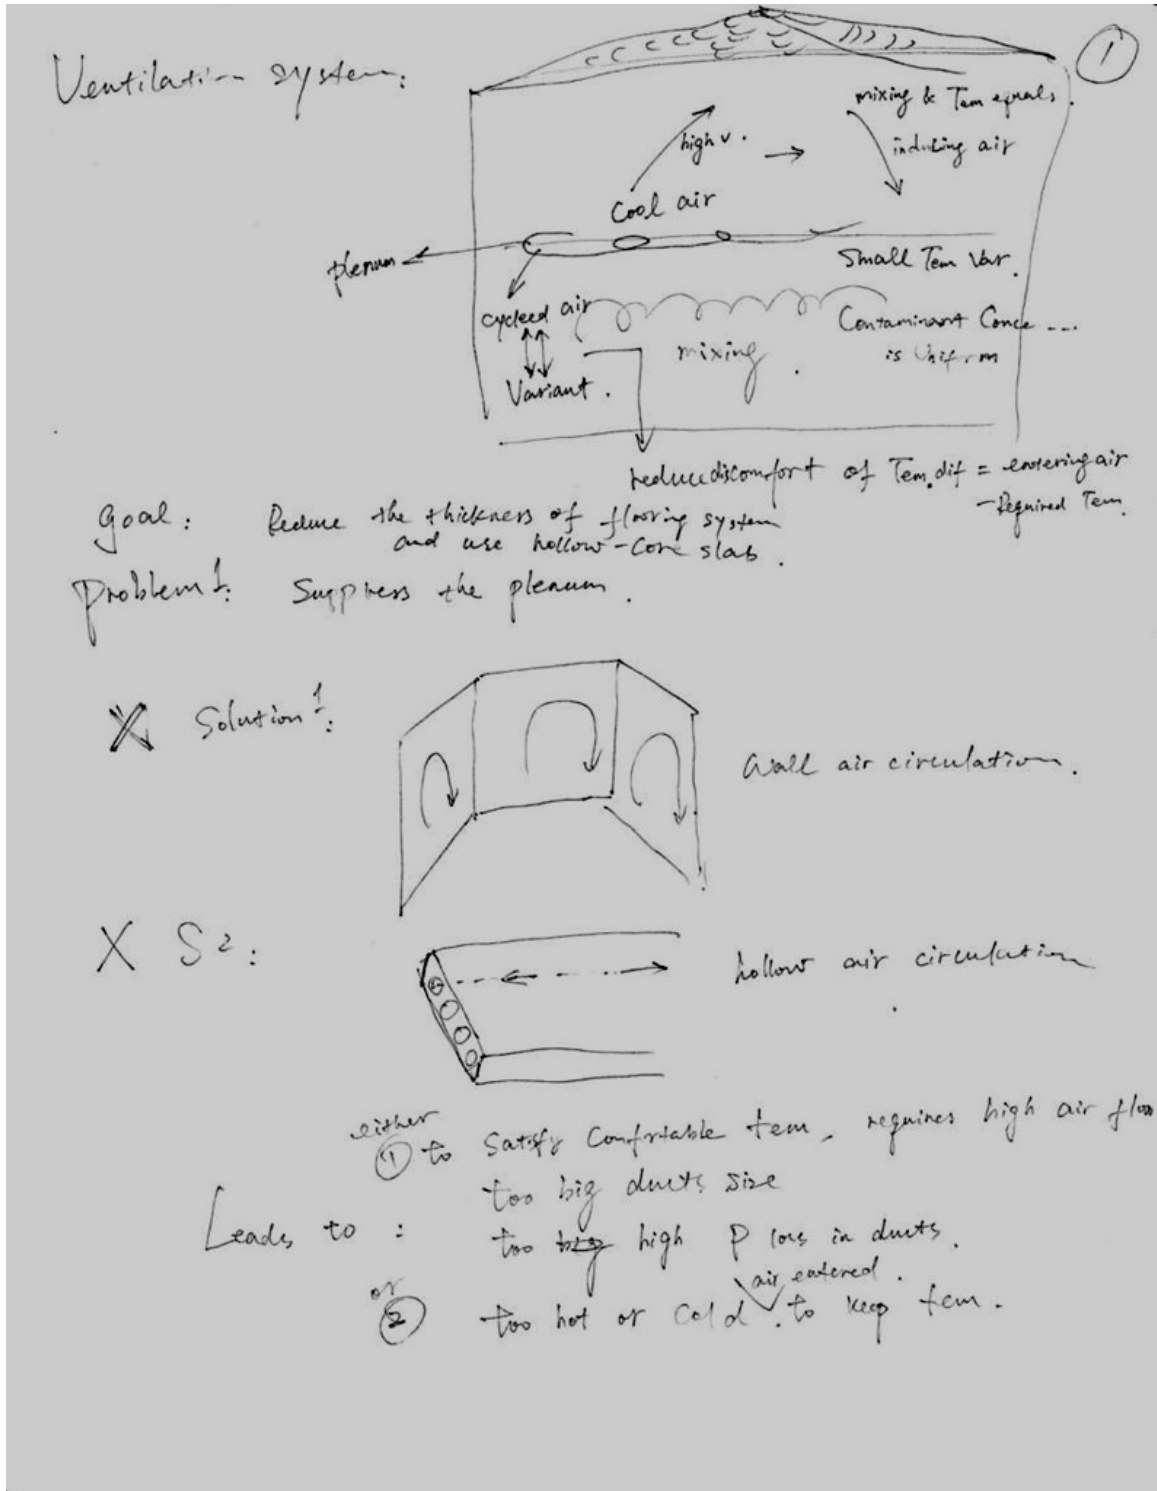 Ventilation system:
1
mixing & Tem equals.
high v.
inducing air
Cool air
plenum
Small Tem Var.
cycleed air
Contaminant Conce ...
is Uniform
mixing.
Variant.
reduce discomfort of Tem. dif = entering air
- Required Tem.
Goal: Reduce the thickness of flooring system
and use hollow-core slab.
Problem 1: Suppress the plenum.
X Solution 1:
Wall air circulation.
X S2:
hollow air circulation.
either
① to Satisfy Comfortable tem, requires high air flow
too big ducts size
Leads to: too big high P loss in ducts.
air entered.
or
② too hot or cold. to keep tem.